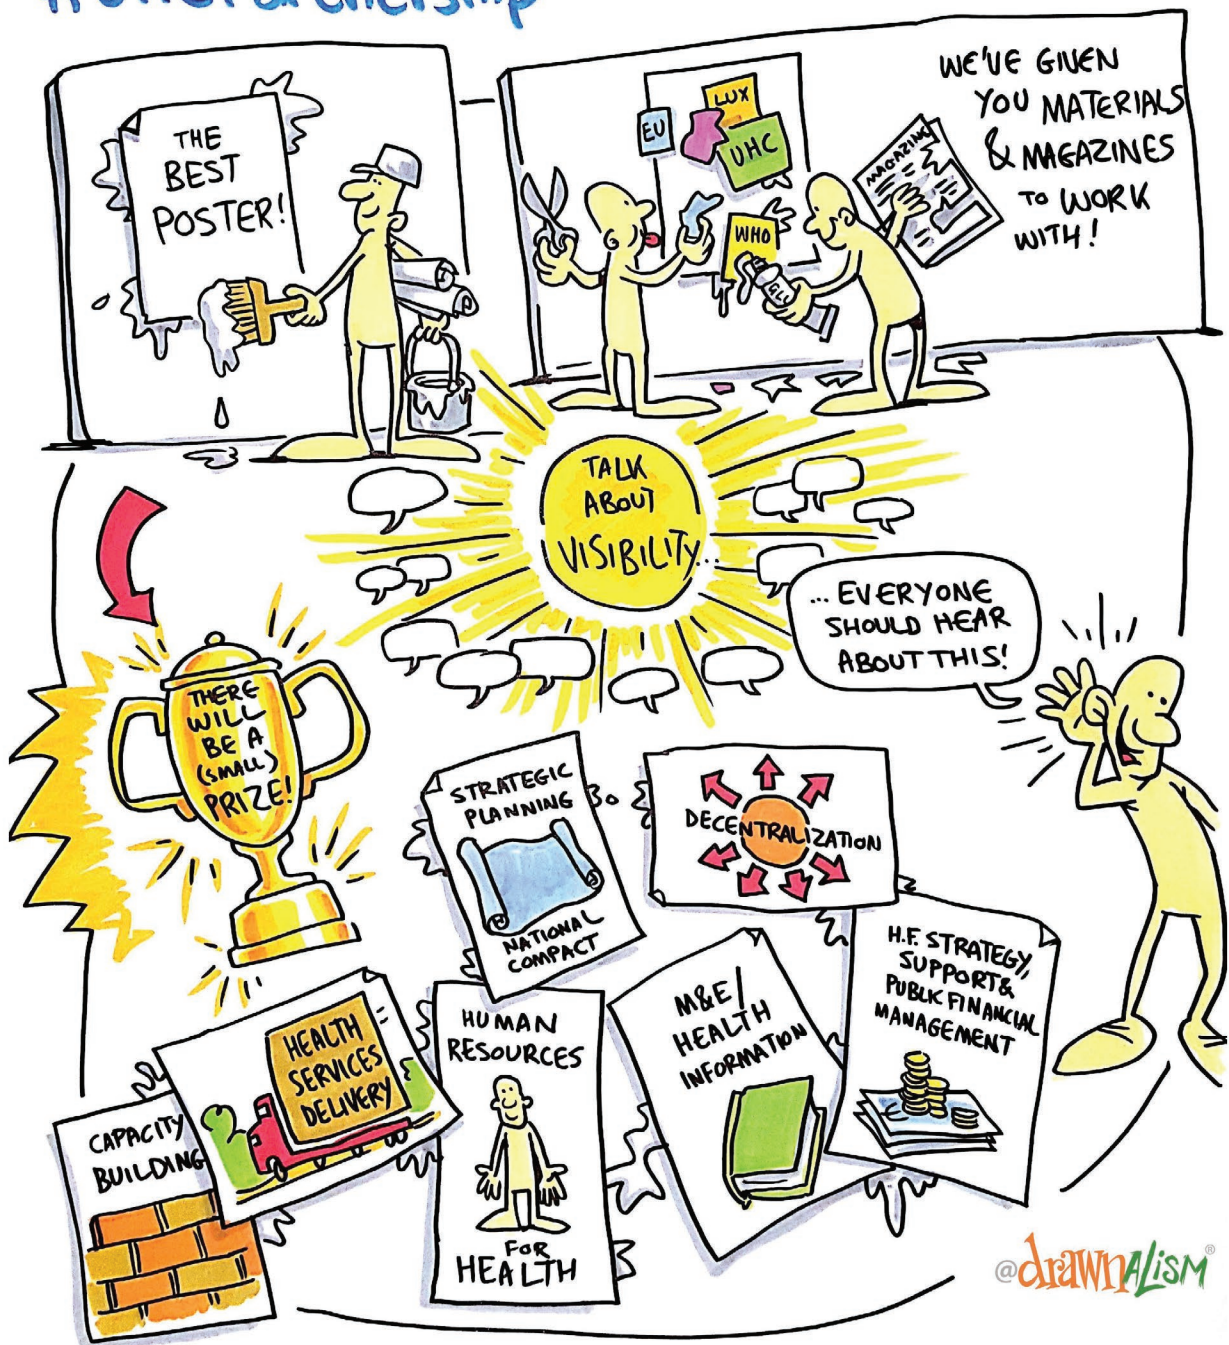 THE
BEST
POSTER!
EU
LUX
UHC
WHO
MAGAZINE
WE'VE GIVEN
YOU MATERIALS
& MAGAZINES
TO WORK
WITH!
TALK
ABOUT
VISIBILITY...
... EVERYONE
SHOULD HEAR
ABOUT THIS!
THERE
WILL
BE A
(SMALL)
PRIZE!
STRATEGIC
PLANNING
NATIONAL
COMPACT
DECENTRALIZATION
H.F. STRATEGY,
SUPPORT &
PUBLIC FINANCIAL
MANAGEMENT
M&E/
HEALTH
INFORMATION
HUMAN
RESOURCES
FOR
HEALTH
HEALTH
SERVICES
DELIVERY
CAPACITY
BUILDING
@drawnALiSM®